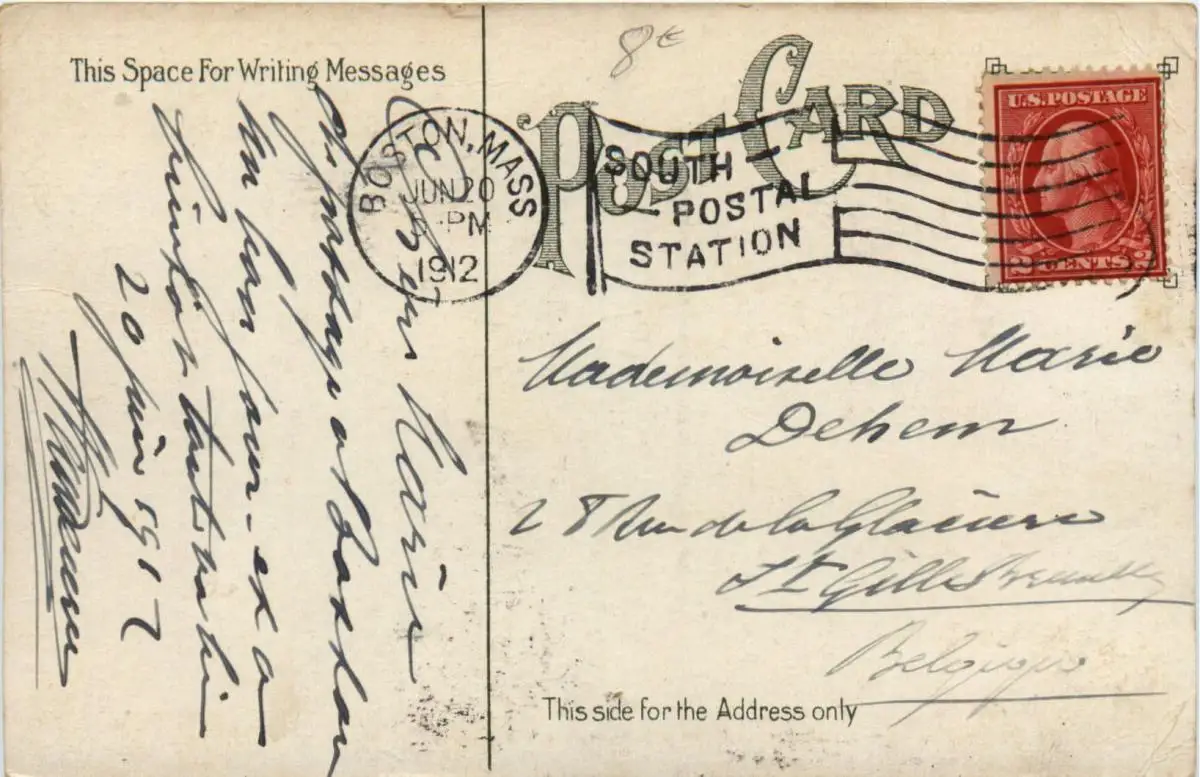 This Space For Writing Messages
8€
POST CARD
U.S. POSTAGE
2 CENTS 2
BOSTON, MASS
JUN 20
PM
1912
SOUTH
POSTAL
STATION
Marie
un beau jour et a
bientôt
20 juin 1912
Mademoiselle Marie
Dehem
28 Rue de la Glacière
St Gilles Bruxelles
Belgique
This side for the Address only